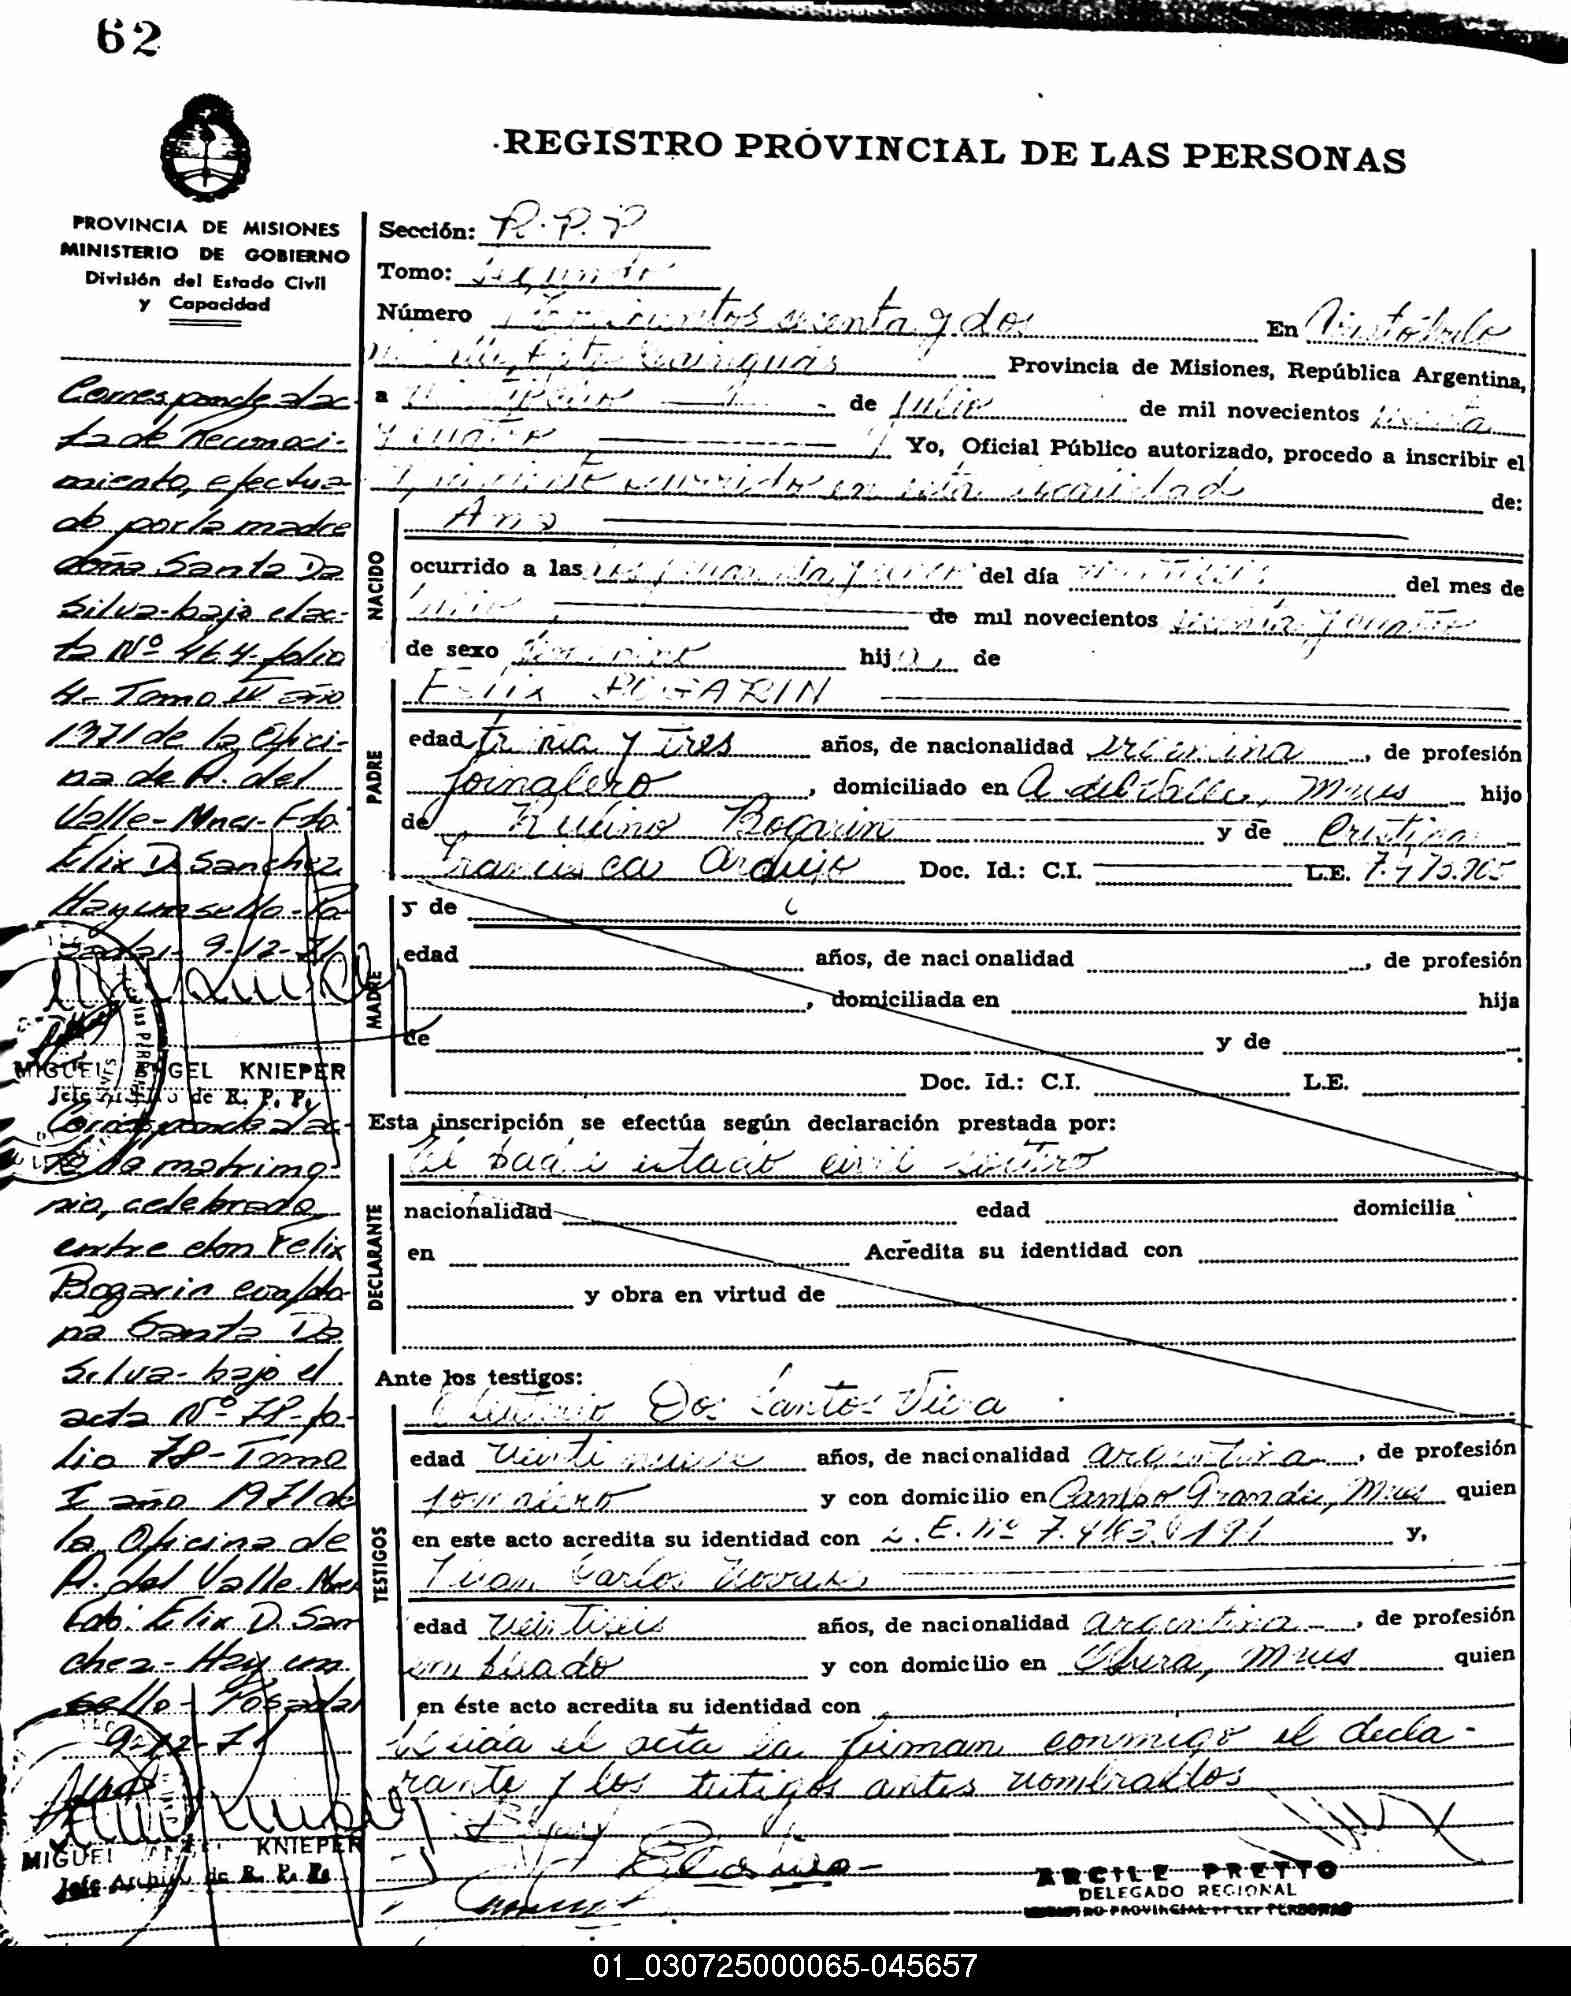 62
REGISTRO PROVINCIAL DE LAS PERSONAS
PROVINCIA DE MISIONES
MINISTERIO DE GOBIERNO
División del Estado Civil
y Capacidad
Corresponde al ac-
ta de Reconoci-
miento, efectua-
do por la madre
doña Santa Da
Silva-bajo el ac-
ta Nº 464-folio
4- Tomo IV año
1971 de la Ofici-
na de A. del
Valle-Mnes-Fdo
Elix D. Sanchez
Hay un sello-Po-
sadas- 9-12-71
MIGUEL ANGEL KNIEPER
Jefe Archivo de R. P. P.
Corresponde al ac-
ta de matrimo-
nio, celebrado
entre don Felix
Bogarin con do-
ña Santa Da
Silva- bajo el
acta Nº 78-fo-
lio 78-Tomo
I año 1971 de
la Oficina de
A. del Valle Mnes
Fdo: Elix D. San
chez- Hay un
sello- Posadas
9-12-71
MIGUEL KNIEPER
Jefe Archivo de R. P. P.
Sección: R.P.P
Tomo: Segundo
Número y dos En Aristóbulo
del Valle, Dpto Cainguás Provincia de Misiones, República Argentina,
a de Julio de mil novecientos sesenta
y cuatro Yo, Oficial Público autorizado, procedo a inscribir el
nacimiento ocurrido en esta localidad de:
NACIDO
Ana
ocurrido a las del día del mes de
Julio de mil novecientos sesenta y cuatro
de sexo femenino hija de
PADRE
Felix BOGARIN
edad treinta y tres años, de nacionalidad argentina, de profesión
jornalero, domiciliado en A. del Valle, Mnes hijo
de Rufino Bogarin y de Cristina
Francisca Araujo Doc. Id.: C.I. L.E. 7.475.905
MADRE
y de
edad años, de nacionalidad, de profesión
, domiciliada en hija
de y de
Doc. Id.: C.I. L.E.
Esta inscripción se efectúa según declaración prestada por:
DECLARANTE
El padre estado civil soltero
nacionalidad edad domicilia
en Acredita su identidad con
y obra en virtud de
Ante los testigos:
TESTIGOS
Eleuterio Dos Santos Viera
edad veintinueve años, de nacionalidad argentina, de profesión
jornalero y con domicilio en Campo Grande, Mnes quien
en este acto acredita su identidad con L.E. nº y,
Juan Carlos
edad veintiseis años, de nacionalidad argentina, de profesión
empleado y con domicilio en Oberá, Mnes quien
en éste acto acredita su identidad con
Leida el acta la firman conmigo el decla-
rante y los testigos antes nombrados
ARCILE PRETTO
DELEGADO REGIONAL
REGISTRO PROVINCIAL DE LAS PERSONAS
01_030725000065-045657